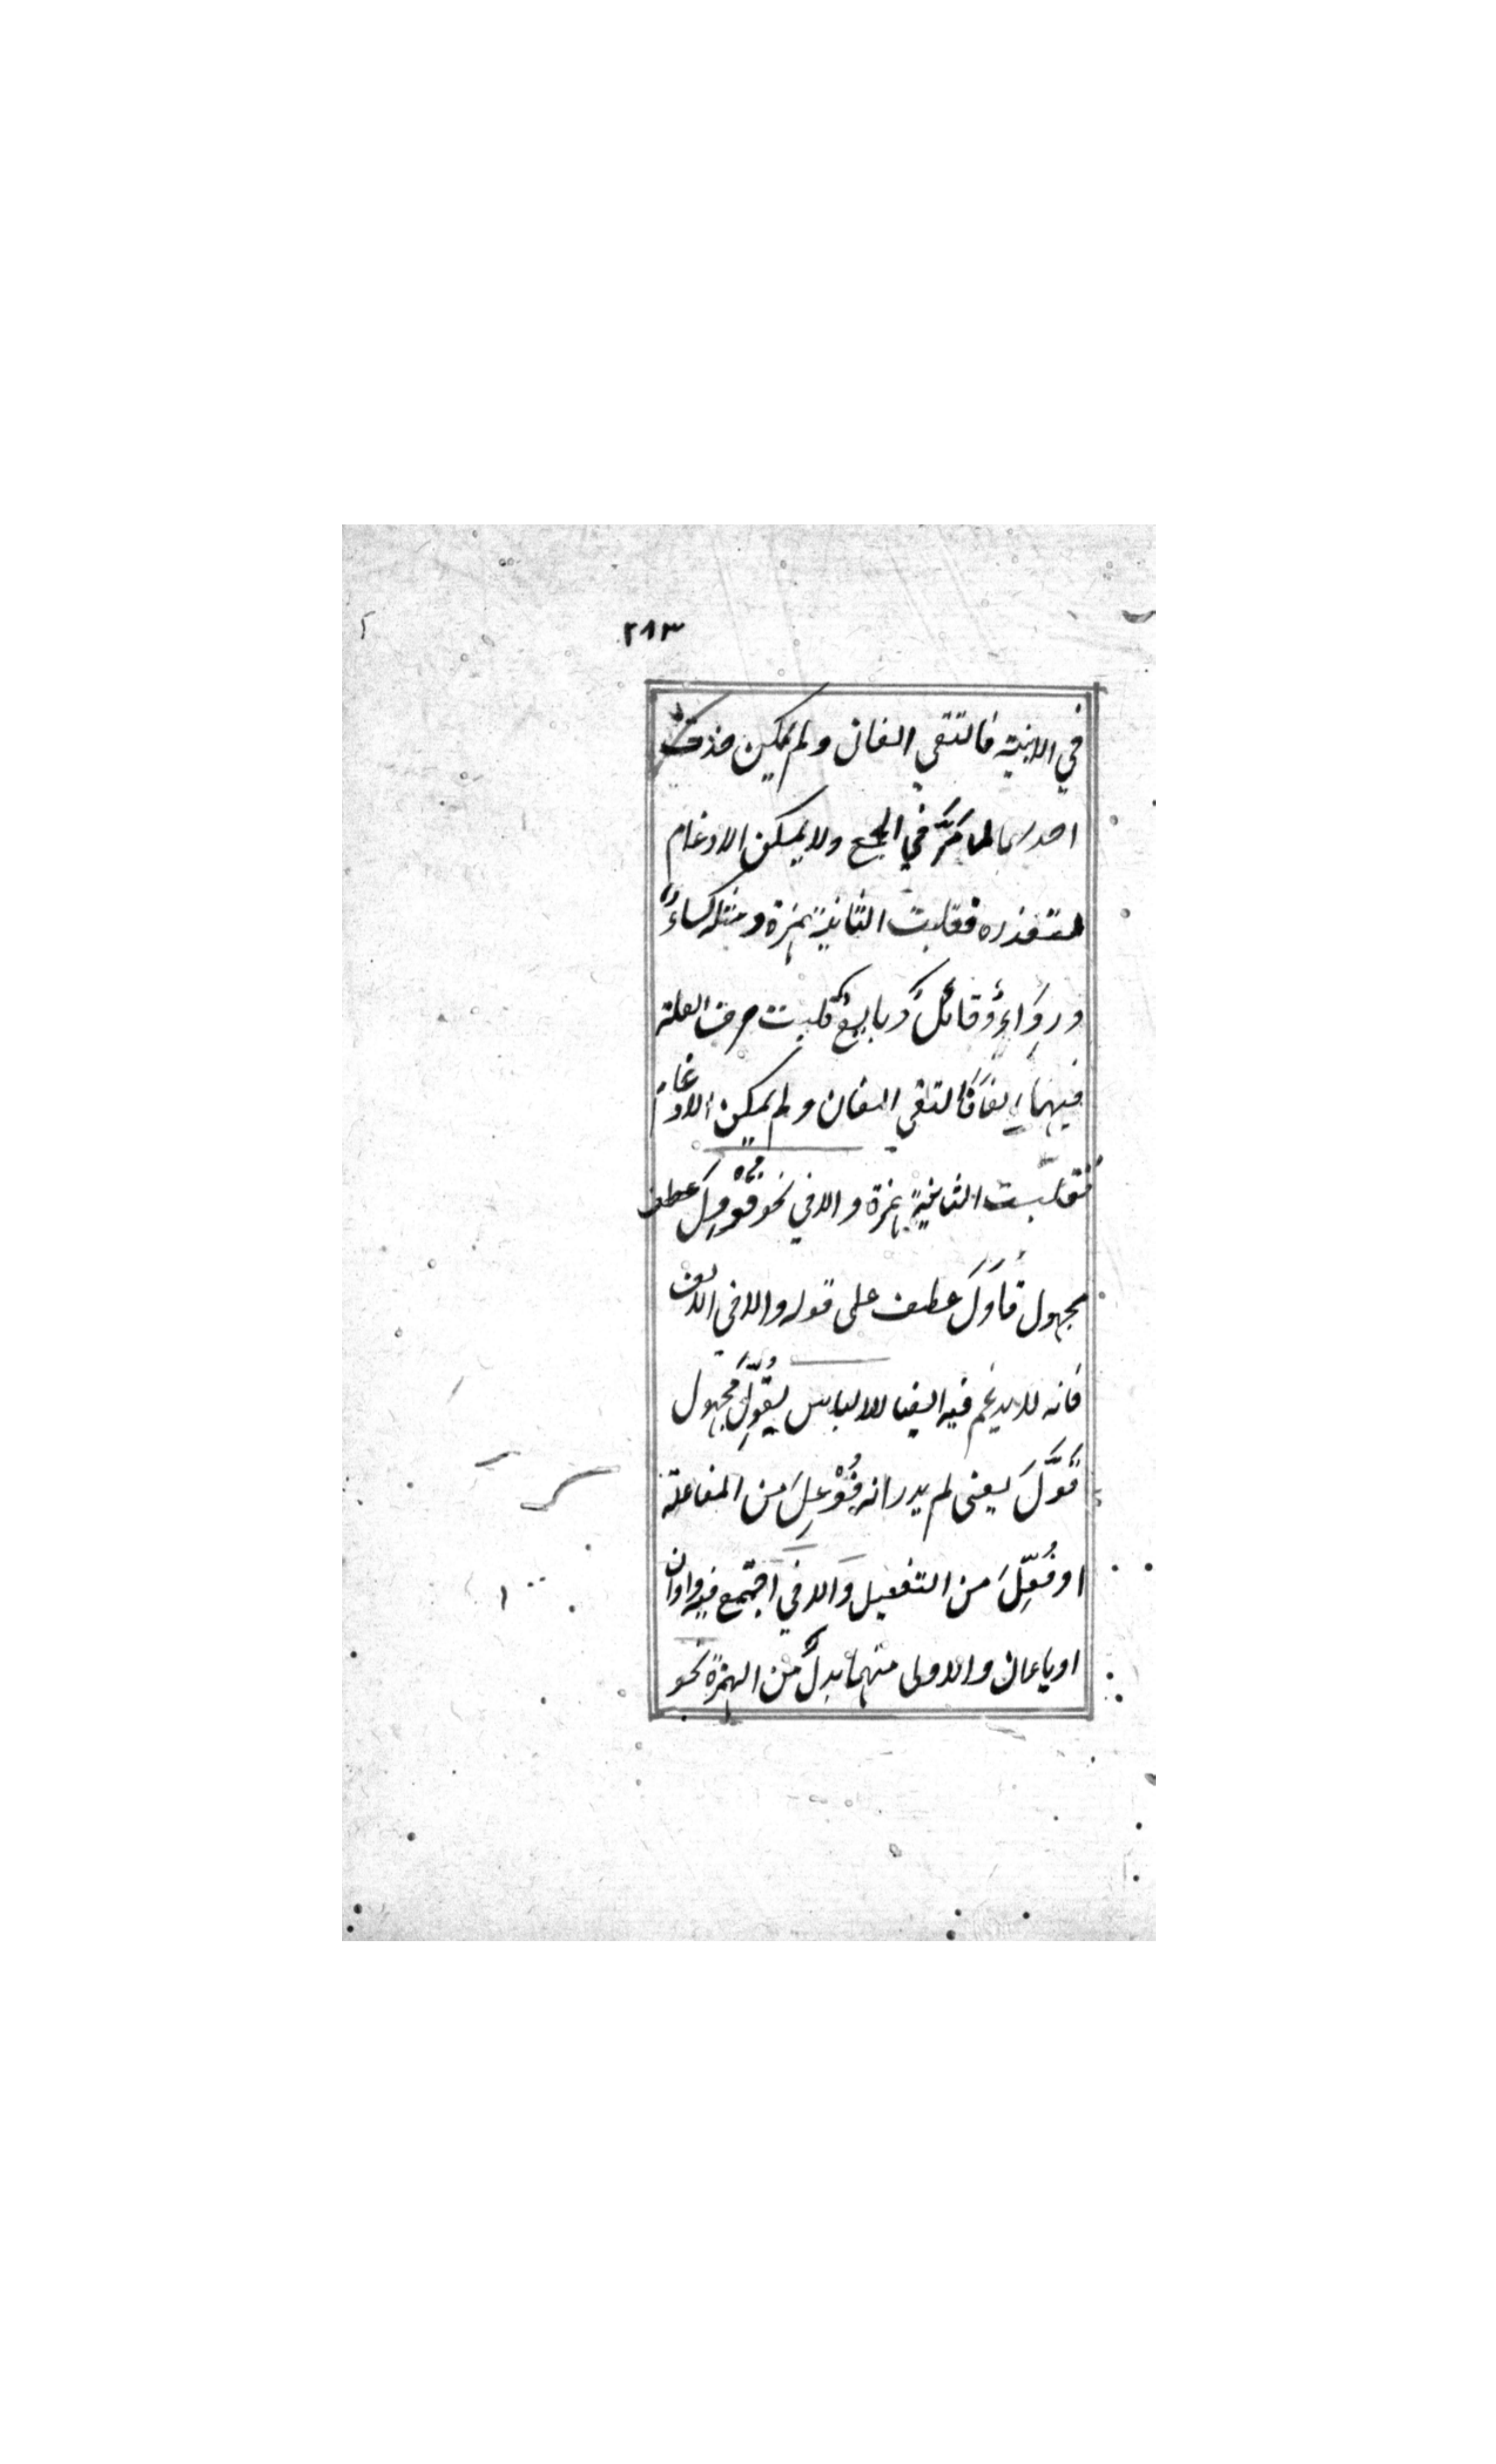 ٢٨٣
في الابنية فالتقي الفان ولم يمكن حذف
احدىهما لما مَرَّ في الجمع ولا يمكن الادغام
لتعذره فقلبت الثانية همزة ومثله كساءٌ
ورِوَاءٌ وقائلٌ وبايعٌ قلبت حرف العلة
فيهما الفًا فالتقي الفان ولم يمكن الادغام
فقلبت الثانية همزة والا في نحو قُوْوِلَ عطف
مجهول قَاوَلَ عطف على قوله والا في الالف
فانه لا يدغم فيه ايضا للالباس بقُوِّلَ مجهول
قَوَّلَ يعني لم يدر انه فُوْعِلَ من المفاعلة
او فُعِّلَ من التفعيل وَالا في اجتمع فيه واوان
او ياءان والاولى منهما بدلٌ من الهمزة نحو